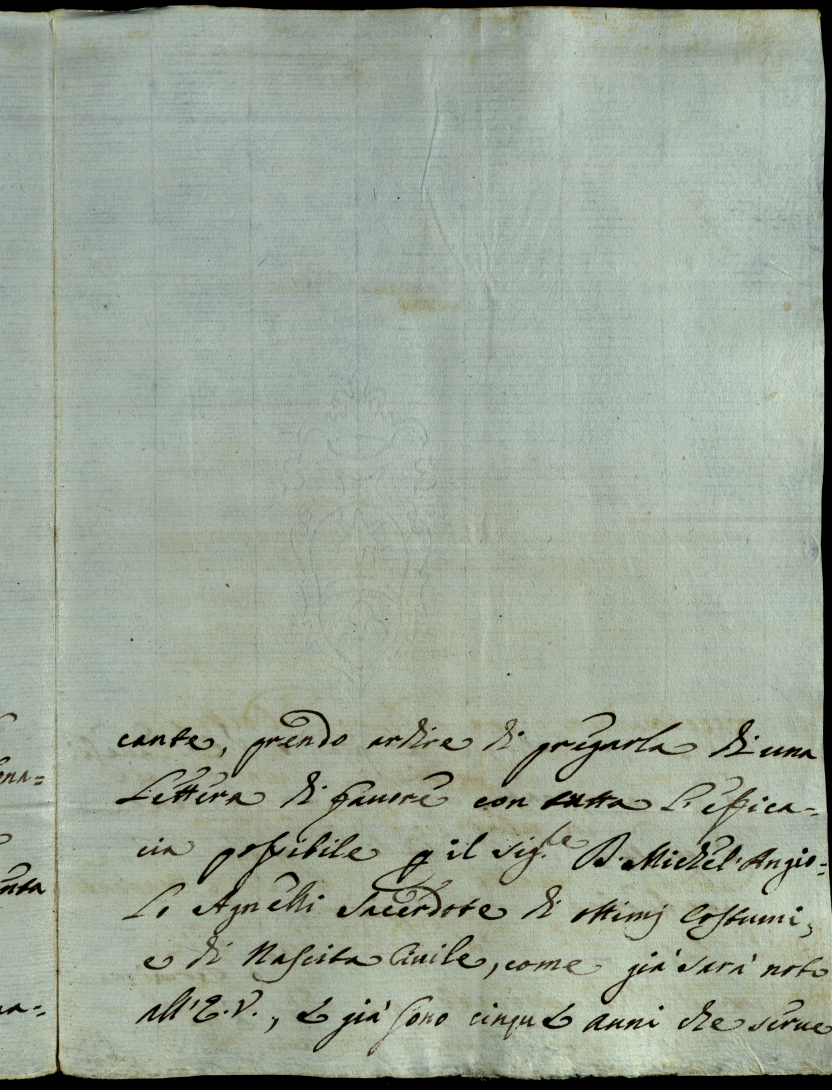 ena=
enta
na=
cante, prendo ardire di pregarla di una
Lettera di favore con tutta l'effica=
cia possibile p il Sig.le D. Michel' Angio=
lo Agnelli Sacerdote di ottimj Costumi,
e di Nascita Civile, come già sarà noto
all'E.V., E già sono cinque anni che serve